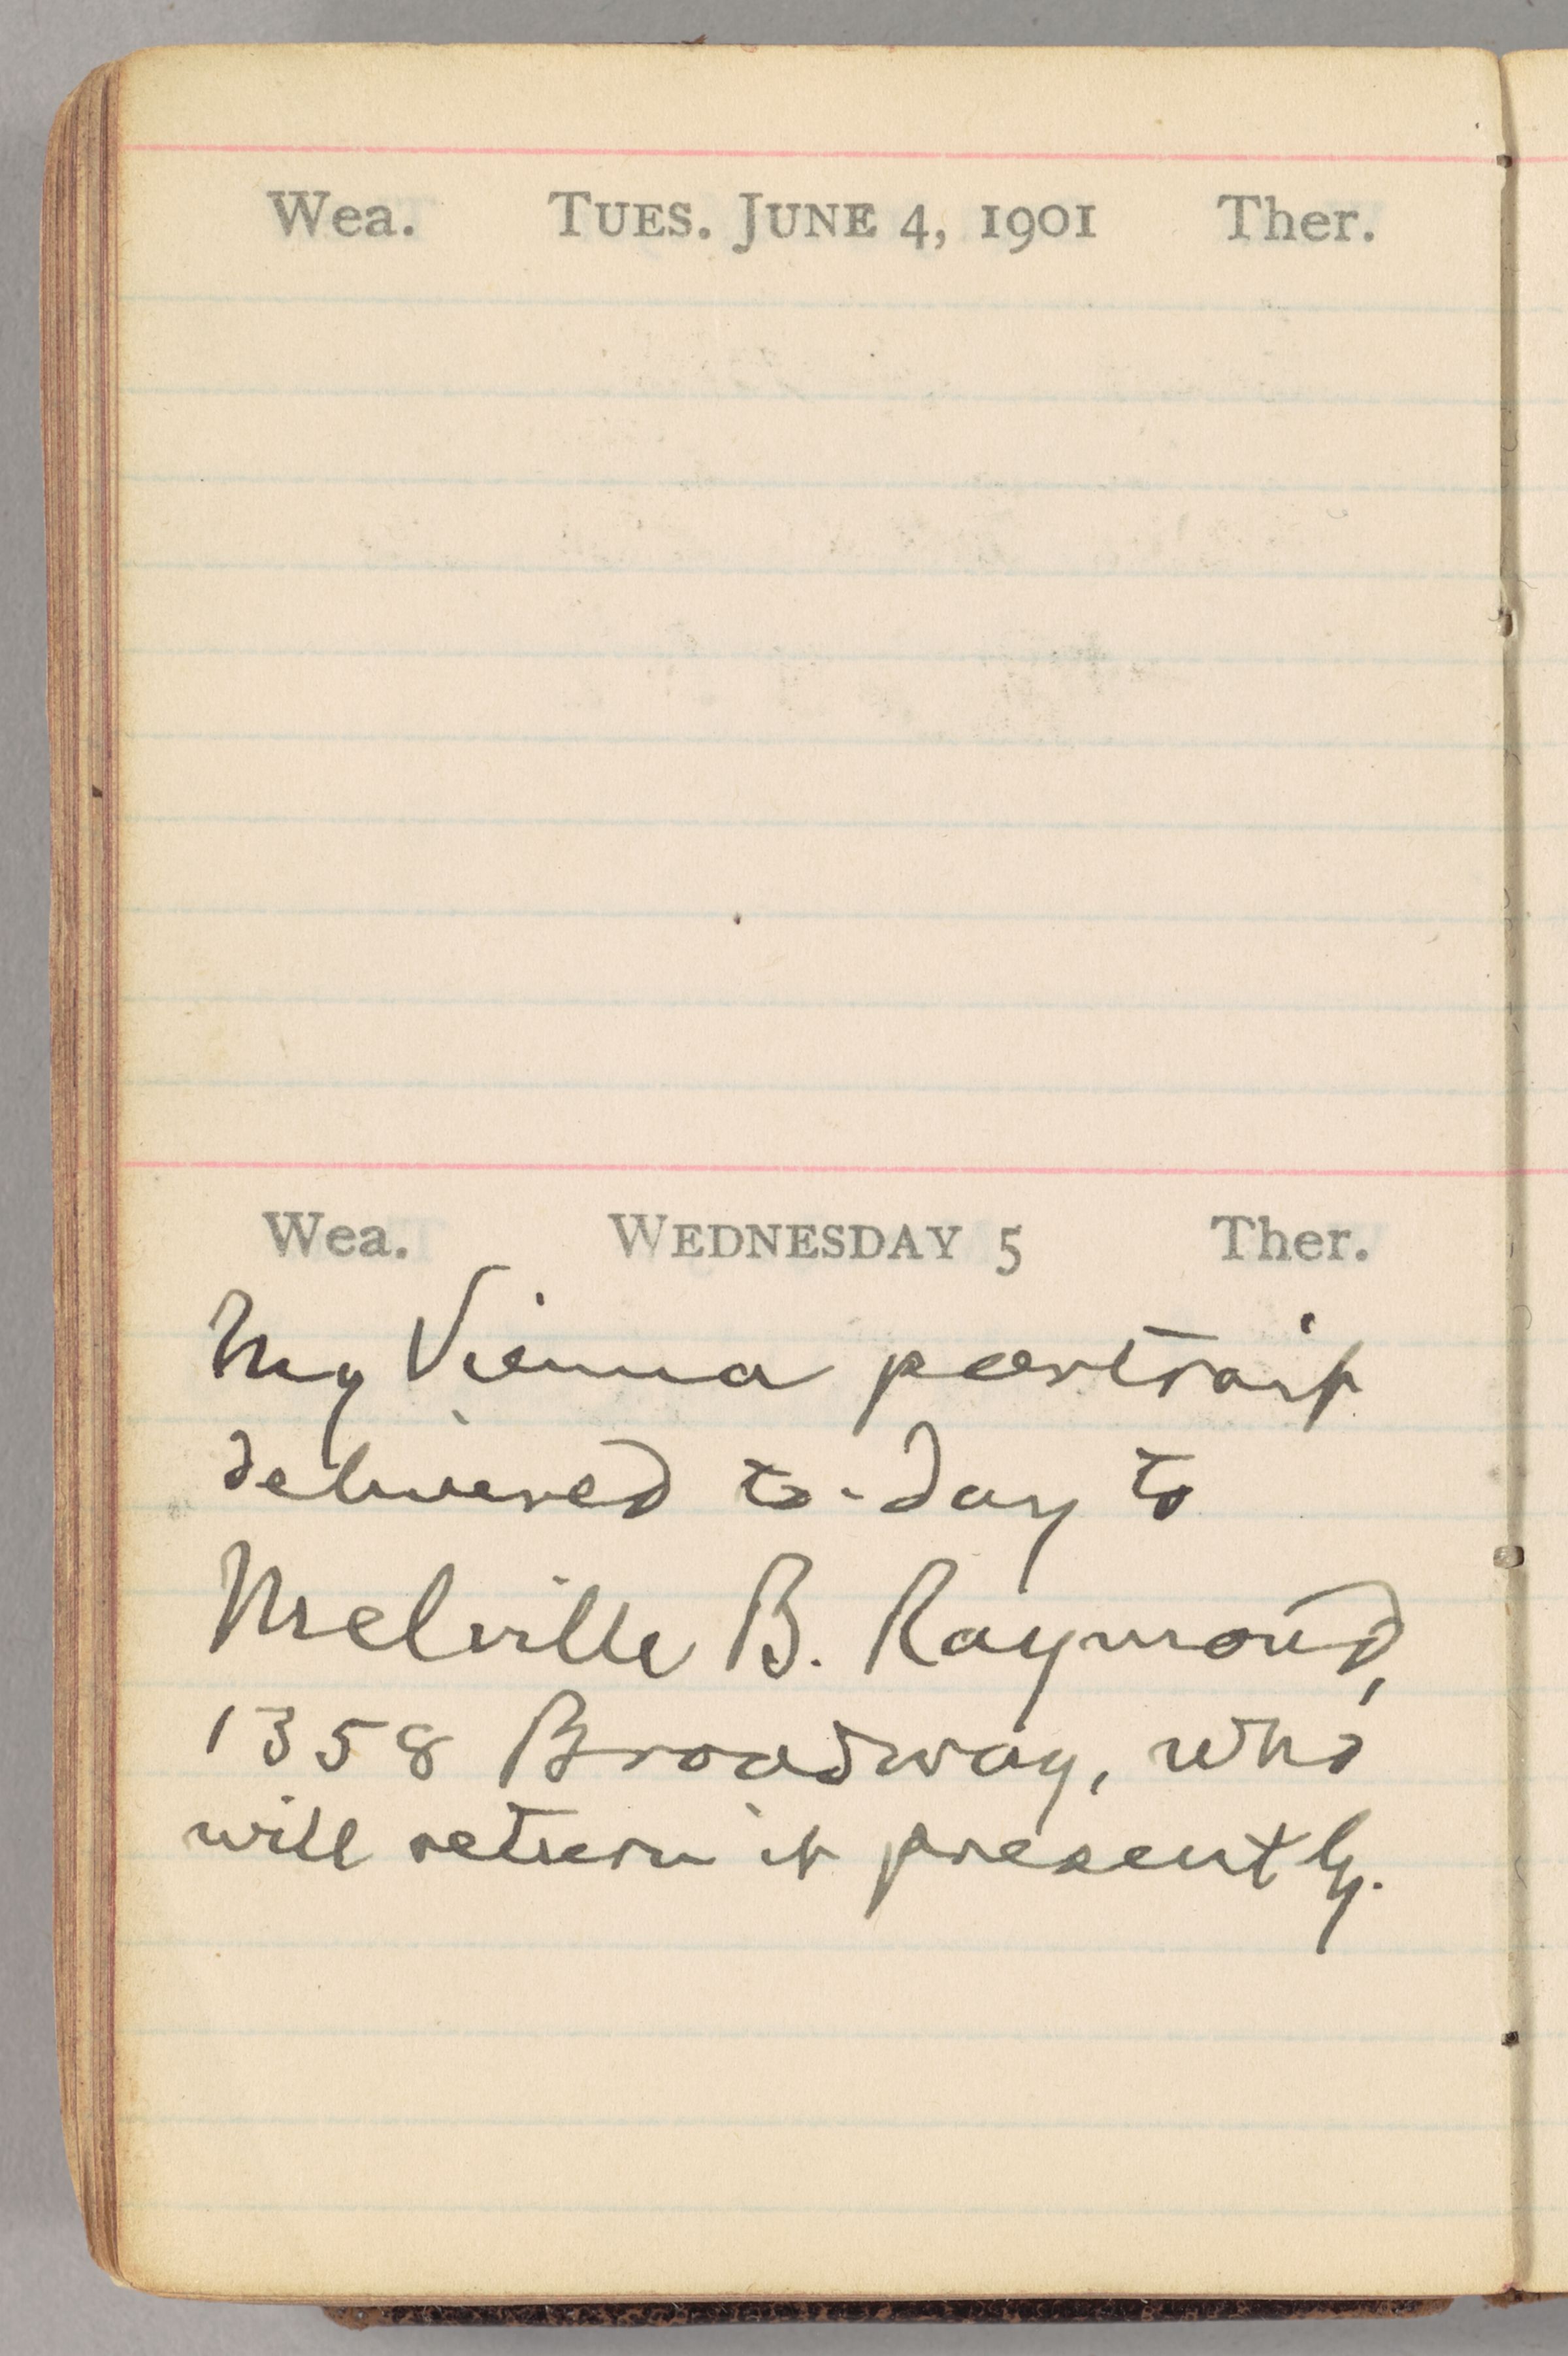 Wea. TUES. JUNE 4, 1901 Ther.
Wea. WEDNESDAY 5 Ther.
My Vienna portrait
delivered to-day to
Melville B. Raymond,
1358 Broadway, who
will return it presently.